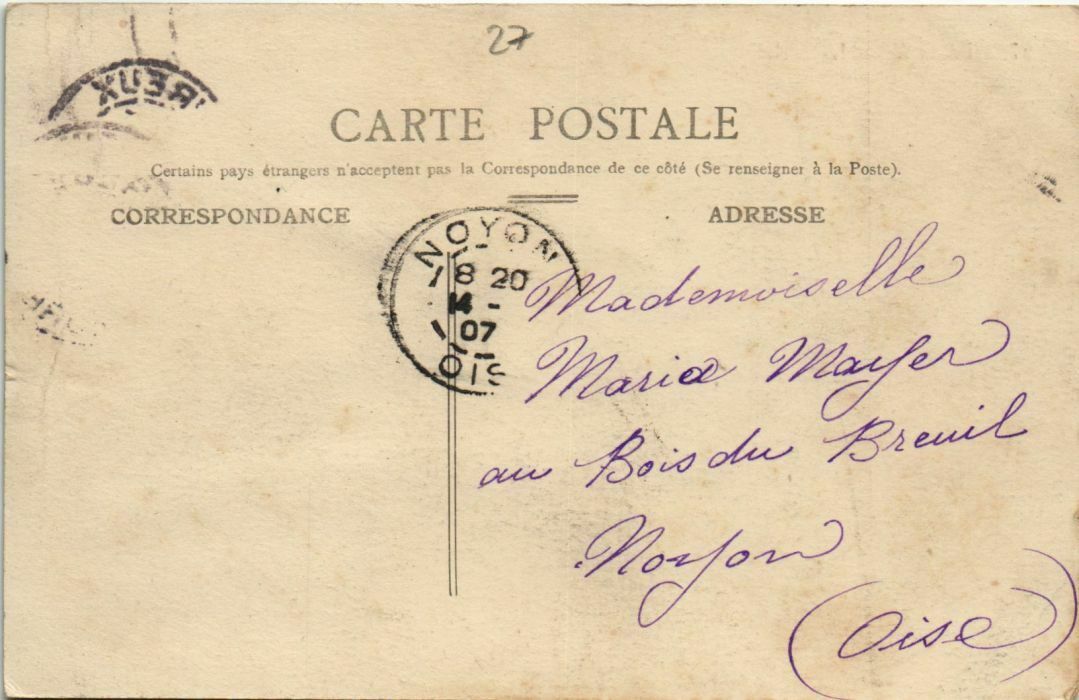 27
REUX
CARTE POSTALE
Certains pays étrangers n'acceptent pas la Correspondance de ce côté (Se renseigner à la Poste).
CORRESPONDANCE
ADRESSE
NOYON
8 20
14 -
07
OIS
Mademoiselle
Maria Mayer
au Bois du Breuil
Noyon
(Oise)